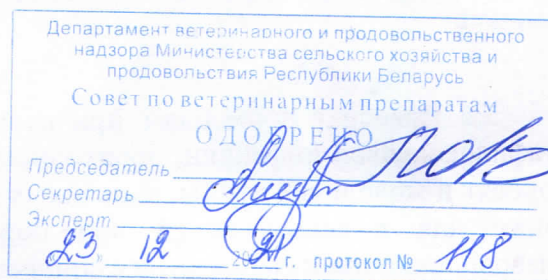 Департамент ветеринарного и продовольственного
надзора Министерства сельского хозяйства и
продовольствия Республики Беларусь
Совет по ветеринарным препаратам
ОДОБРЕНО
Председатель
Секретарь
Эксперт
23 12 2021 г. протокол № 118